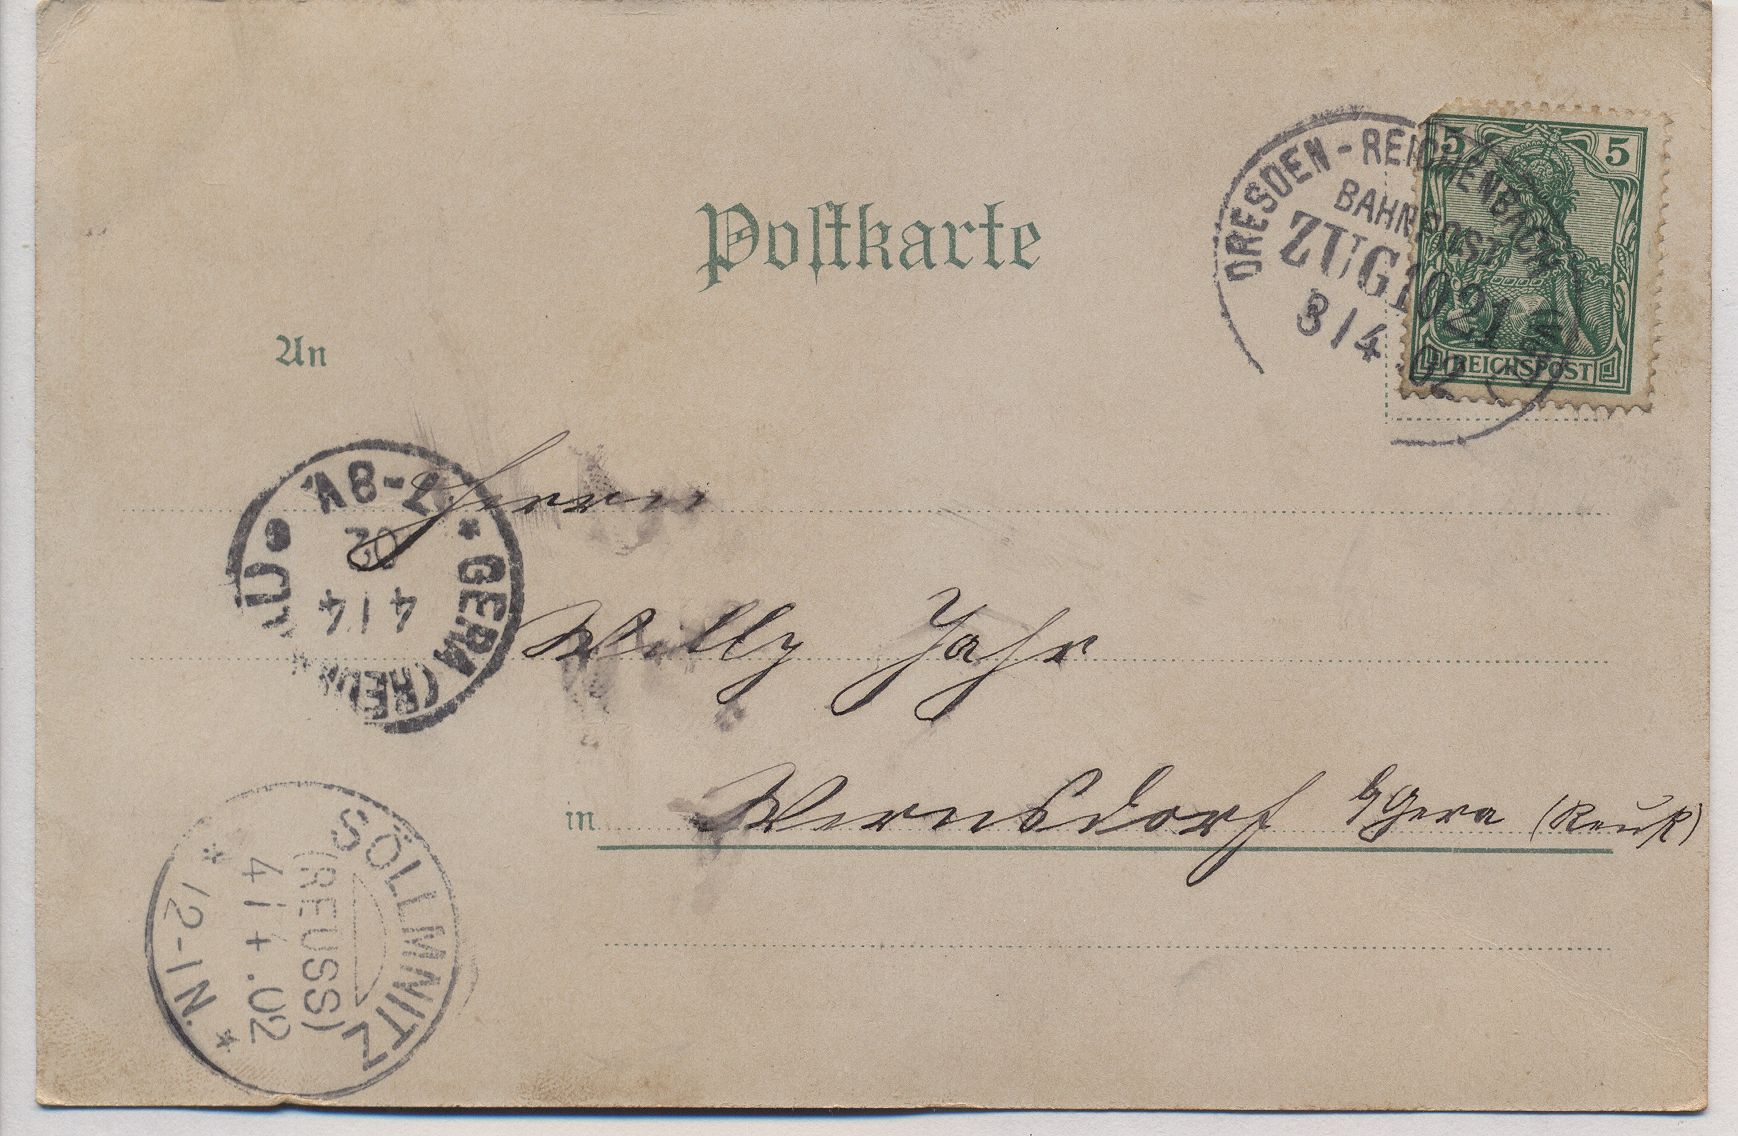 Postkarte
An
DRESDEN - REICHENBACH
BAHNPOST
ZUG 1021
3/4 02
5 5
REICHSPOST
Herrn
Willy Jahr
in Wernsdorf b/Gera (Reuß)
* GERA (REUSS) *
7-8V.
02
4/4
SÖLLMNITZ
(REUSS)
4/4.02
* 12-1N. *